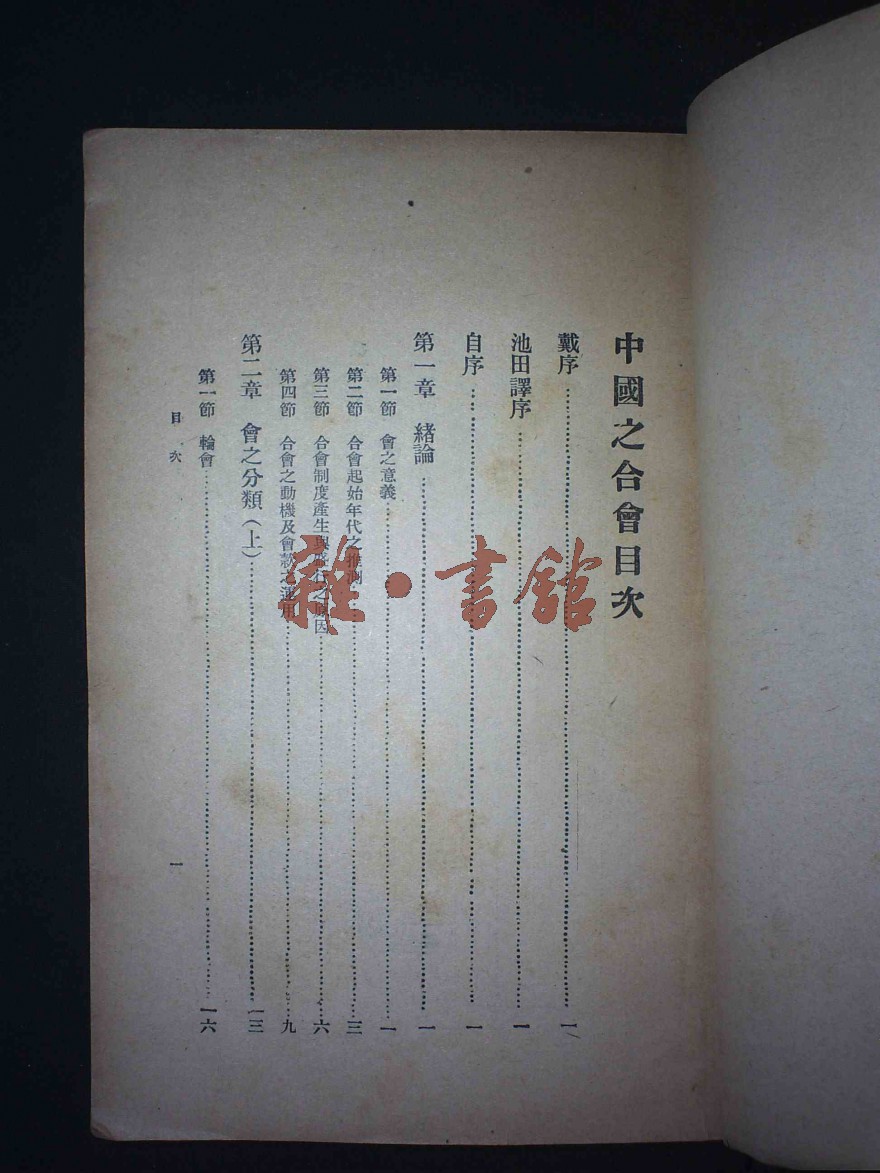 中國之合會目次
戴序 一
池田譯序 一
自序 一
第一章 緒論 一
第一節 會之意義 一
第二節 合會起始年代之推測 三
第三節 合會制度產生與盛行之原因 六
第四節 合會之動機及會款之運用 九
第二章 會之分類(上) 一三
第一節 輪會 一六
目次
一
雜·書館